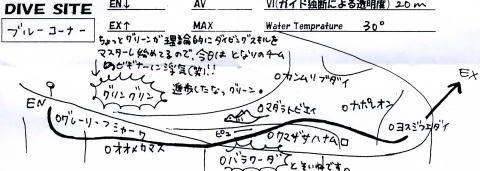 DIVE SITE
ブルーコーナー
EN↓ AV VI(ガイド独断による透明度) 20m
EX↑ MAX Water Temprature 30°
ちょっとグリーンが理論的にダイビングスキルを
マスターし始めてるので、今日は となりのチーム
のビギナーに浮気(笑)!!
進歩したな、グリーン。
グリングリン
カンムリブダイ
EX
EN
グレーリーフシャーク
マダラトビエイ
ナポレオン
ピュー
オオメカマス
クマザサハナムロ
ヨスジフエダイ
バラクーダ